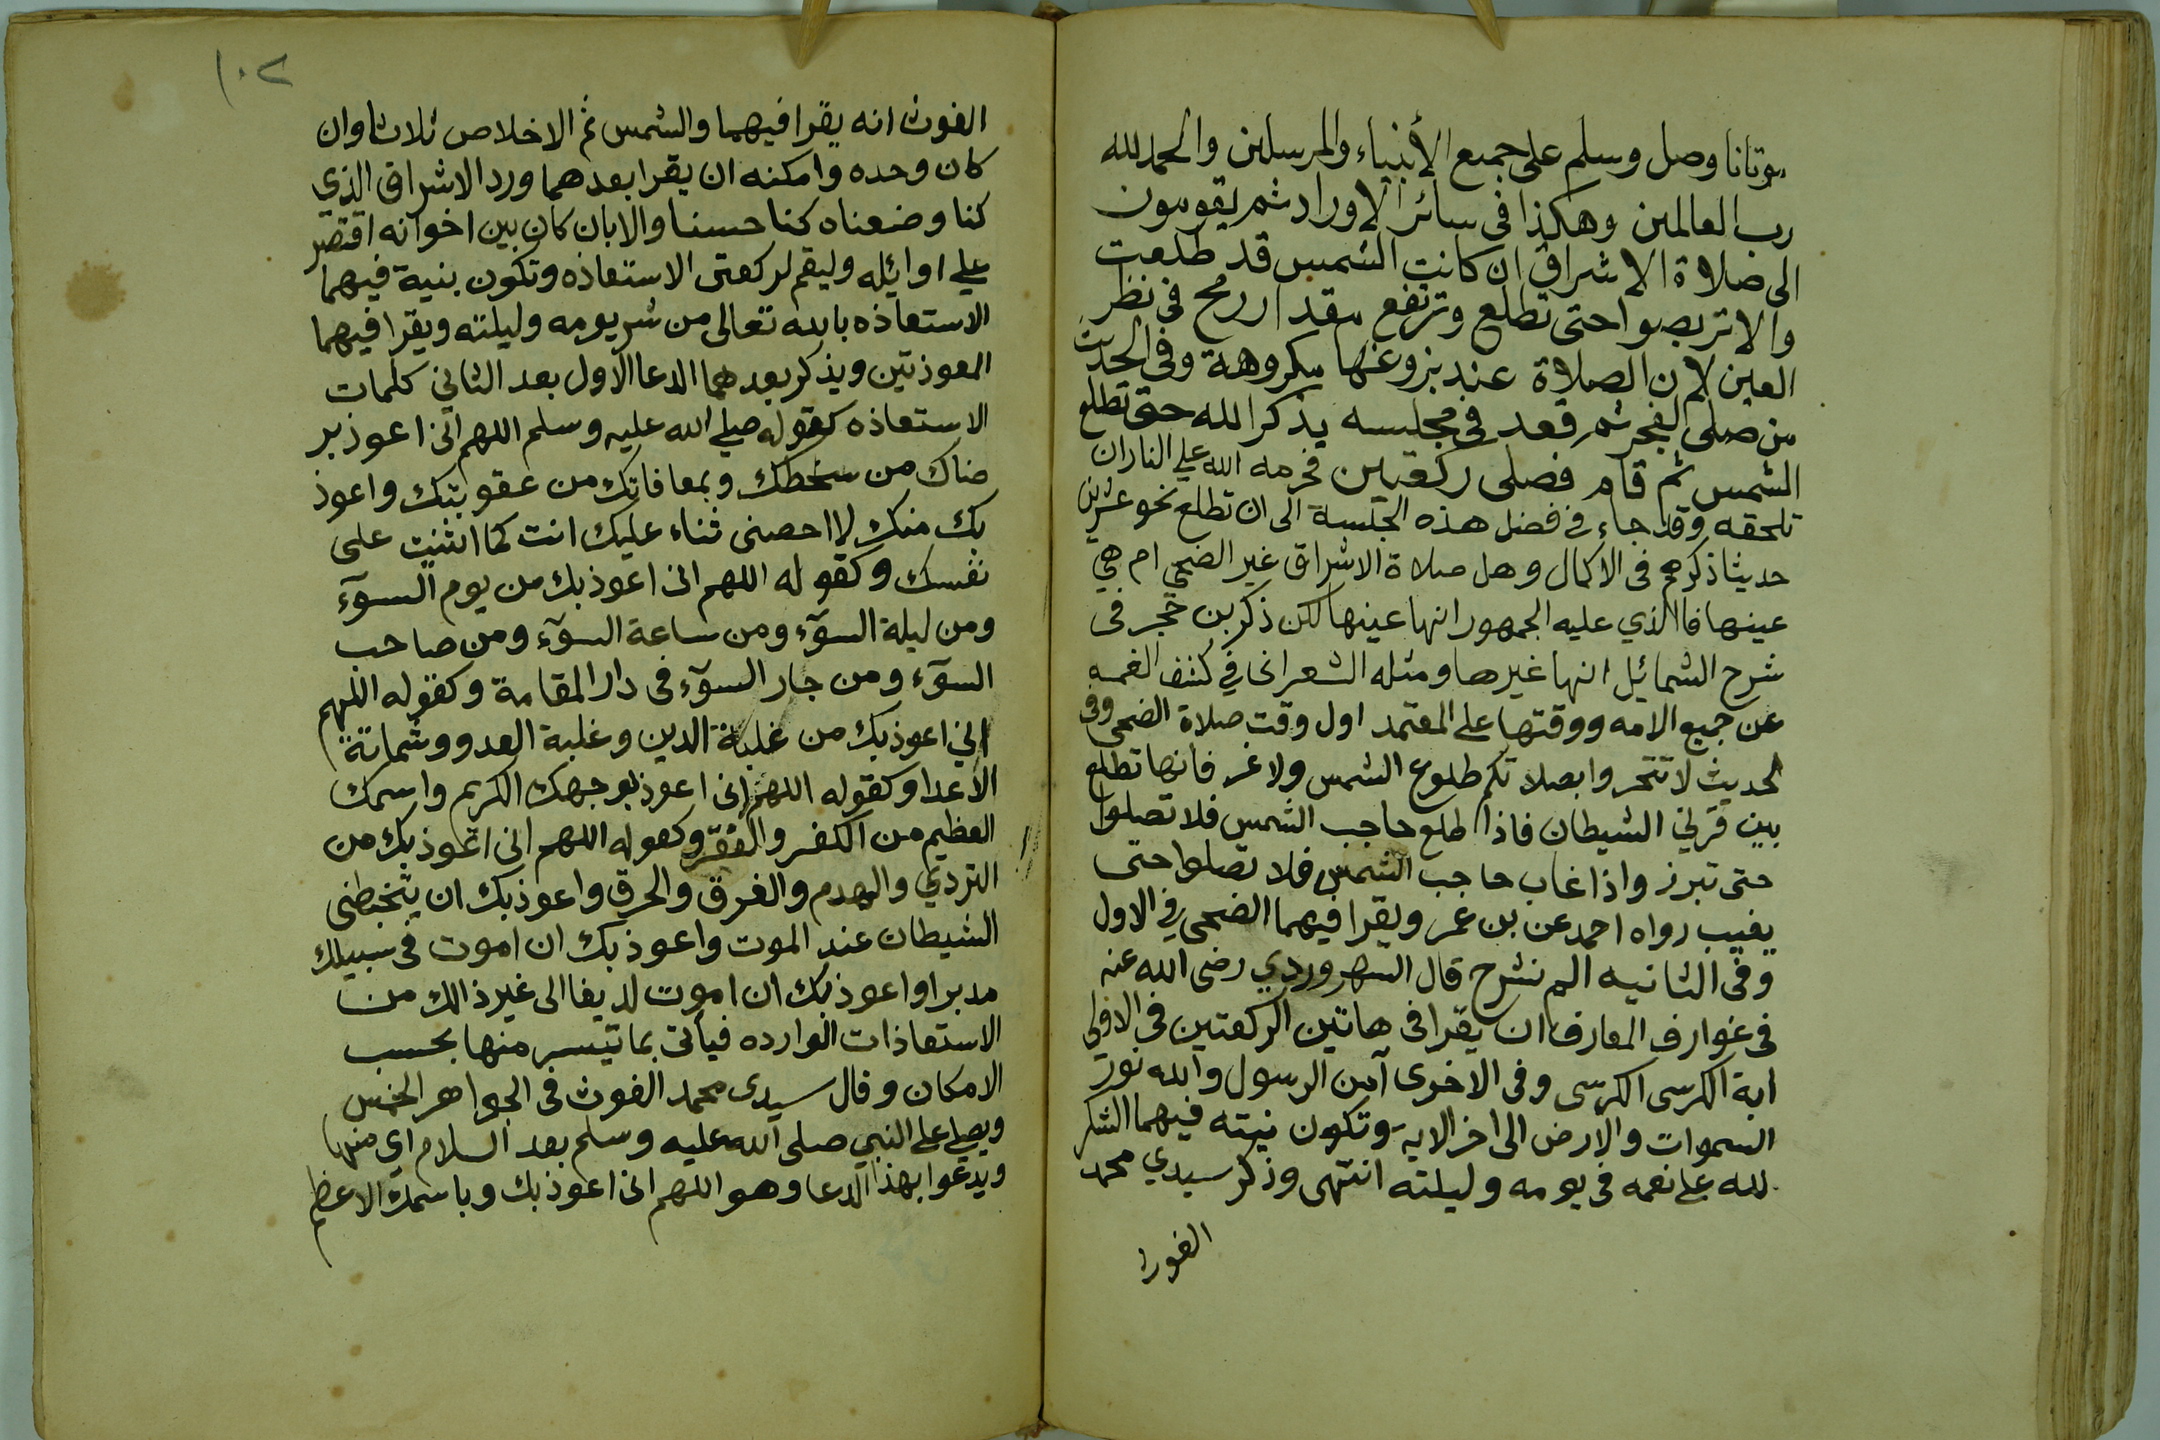 موتانا وصل وسلم على جميع الأنبياء والمرسلين والحمد لله
رب العالمين وهكذا في سائر الاوراد ثم يقومون
الى صلاة الاشراق ان كانت الشمس قد طلعت
والا تربصوا حتى تطلع وترتفع مقدار رمح في نظر
العين لان الصلاة عند بزوغها مكروهة وفي الحديث
من صلى الفجر ثم قعد في مجلسه يذكر الله حتى تطلع
الشمس ثم قام فصلى ركعتين حرمه الله على النار ان
تلحقه وقد جاء في فضل هذه الجلسة الى ان تطلع نحو عشرين
حديثا ذكرهم في الاكمال وهل صلاة الاشراق غير الضحى ام هي
عينها فا الذي عليه الجمهور انها عينها لكن ذكر بن حجر في
شرح الشمائيل انها غيرها ومثله الشعراني في كشف الغمه
عن جميع الامه ووقتها على المعتمد اول وقت صلاة الضحى وفي
الحديث لا تتحروا بصلاتكم طلوع الشمس ولا غر فانها تطلع
بين قرني الشيطان فاذا طلع حاجب الشمس فلا تصلوا
حتى تبرز واذا غاب حاجب الشمس فلا تصلوا حتى
يغيب رواه احمد عن بن عمر ويقرا فيهما الضحى في الاول
وفي الثانيه الم نشرح قال السهروردي رضى الله عنه
في عوارف المعارف ان يقرا في هاتين الركعتين في الاولى
اية الكرسى الكرسى وفي الاخرى آمن الرسول والله نور
السموات والارض الى اخر الايه وتكون نيته فيهما الشكر
لله على نعمه في يومه وليلته انتهى وذكر سيدي محمد
الغوث
١٠٢
الغوث انه يقرا فيهما والشمس ثم الاخلاص ثلاثا وان
كان وحده وامكنه ان يقرا بعدهما ورد الاشراق الذي
كنا وضعناه كنا حسنا والا بان كان بين اخوانه اقتصر
على اوائله وليقم لركعتى الاستعاذه وتكون بنية فيهما
الاستعاذه بالله تعالى من شر يومه وليلته ويقرا فيهما
المعوذتين ويذكر بعدهما الدعا الاول بعد الثاني كلمات
الاستعاذه كقوله صلى الله عليه وسلم اللهم انى اعوذ بر
ضاك من سخطك وبمعافاتك من عقوبتك واعوذ
بك منك لا احصى ثناء عليك انت كما اثنيت على
نفسك وكقوله اللهم انى اعوذ بك من يوم السوٓء
ومن ليلة السوٓء ومن ساعة السوٓء ومن صاحب
السوٓء ومن جار السوٓء في دار المقامة وكقوله اللهم
انى اعوذ بك من غلبة الدين وغلبة العدو وشماتة
الاعدا وكقوله اللهم انى اعوذ بوجهك الكريم واسمك
العظيم من الكفر والفقر وكقوله اللهم انى اعوذ بك من
التردي والهدم والغرق والحرق واعوذ بك ان يتخبطنى
الشيطان عند الموت واعوذ بك ان اموت في سبيلك
مدبرا واعوذ بك ان اموت لديغا الى غير ذالك من
الاستعاذات الوارده فياتى بما تيسر منها بحسب
الامكان وقال سيدى محمد الغوث في الجواهر الخمس
ويصلى على النبي صلى الله عليه وسلم بعد السلام اي منها
ويدعوا بهذا الدعا وهو اللهم انى اعوذ بك وباسمك الاعظم